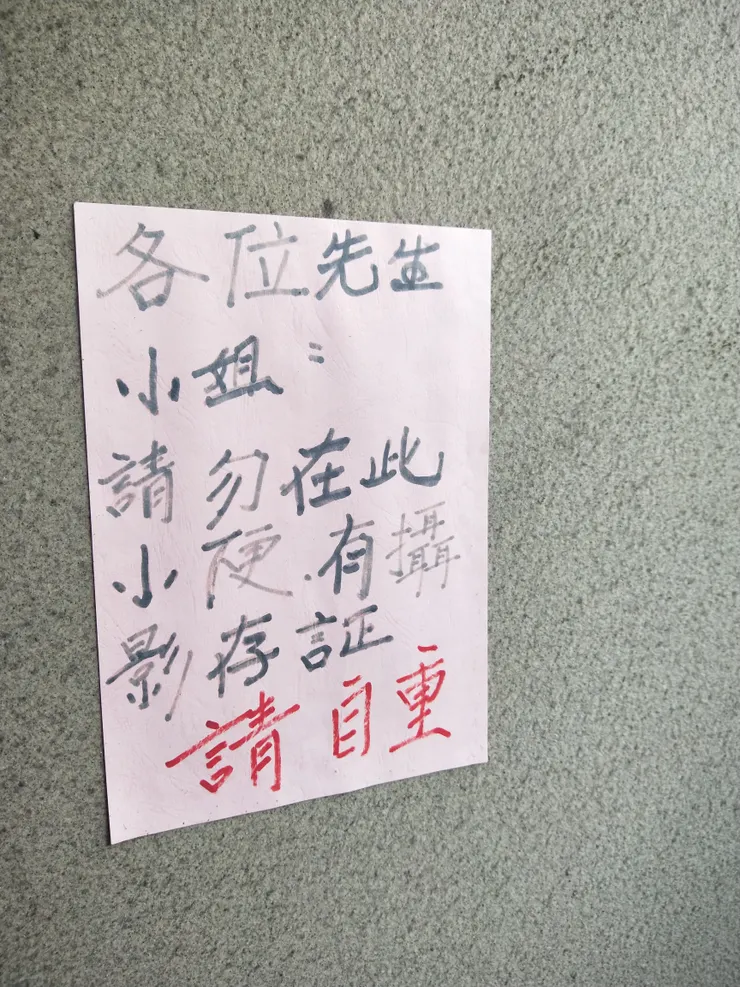 各位先生
小姐：
請勿在此
小便.有攝
影存証
請自重